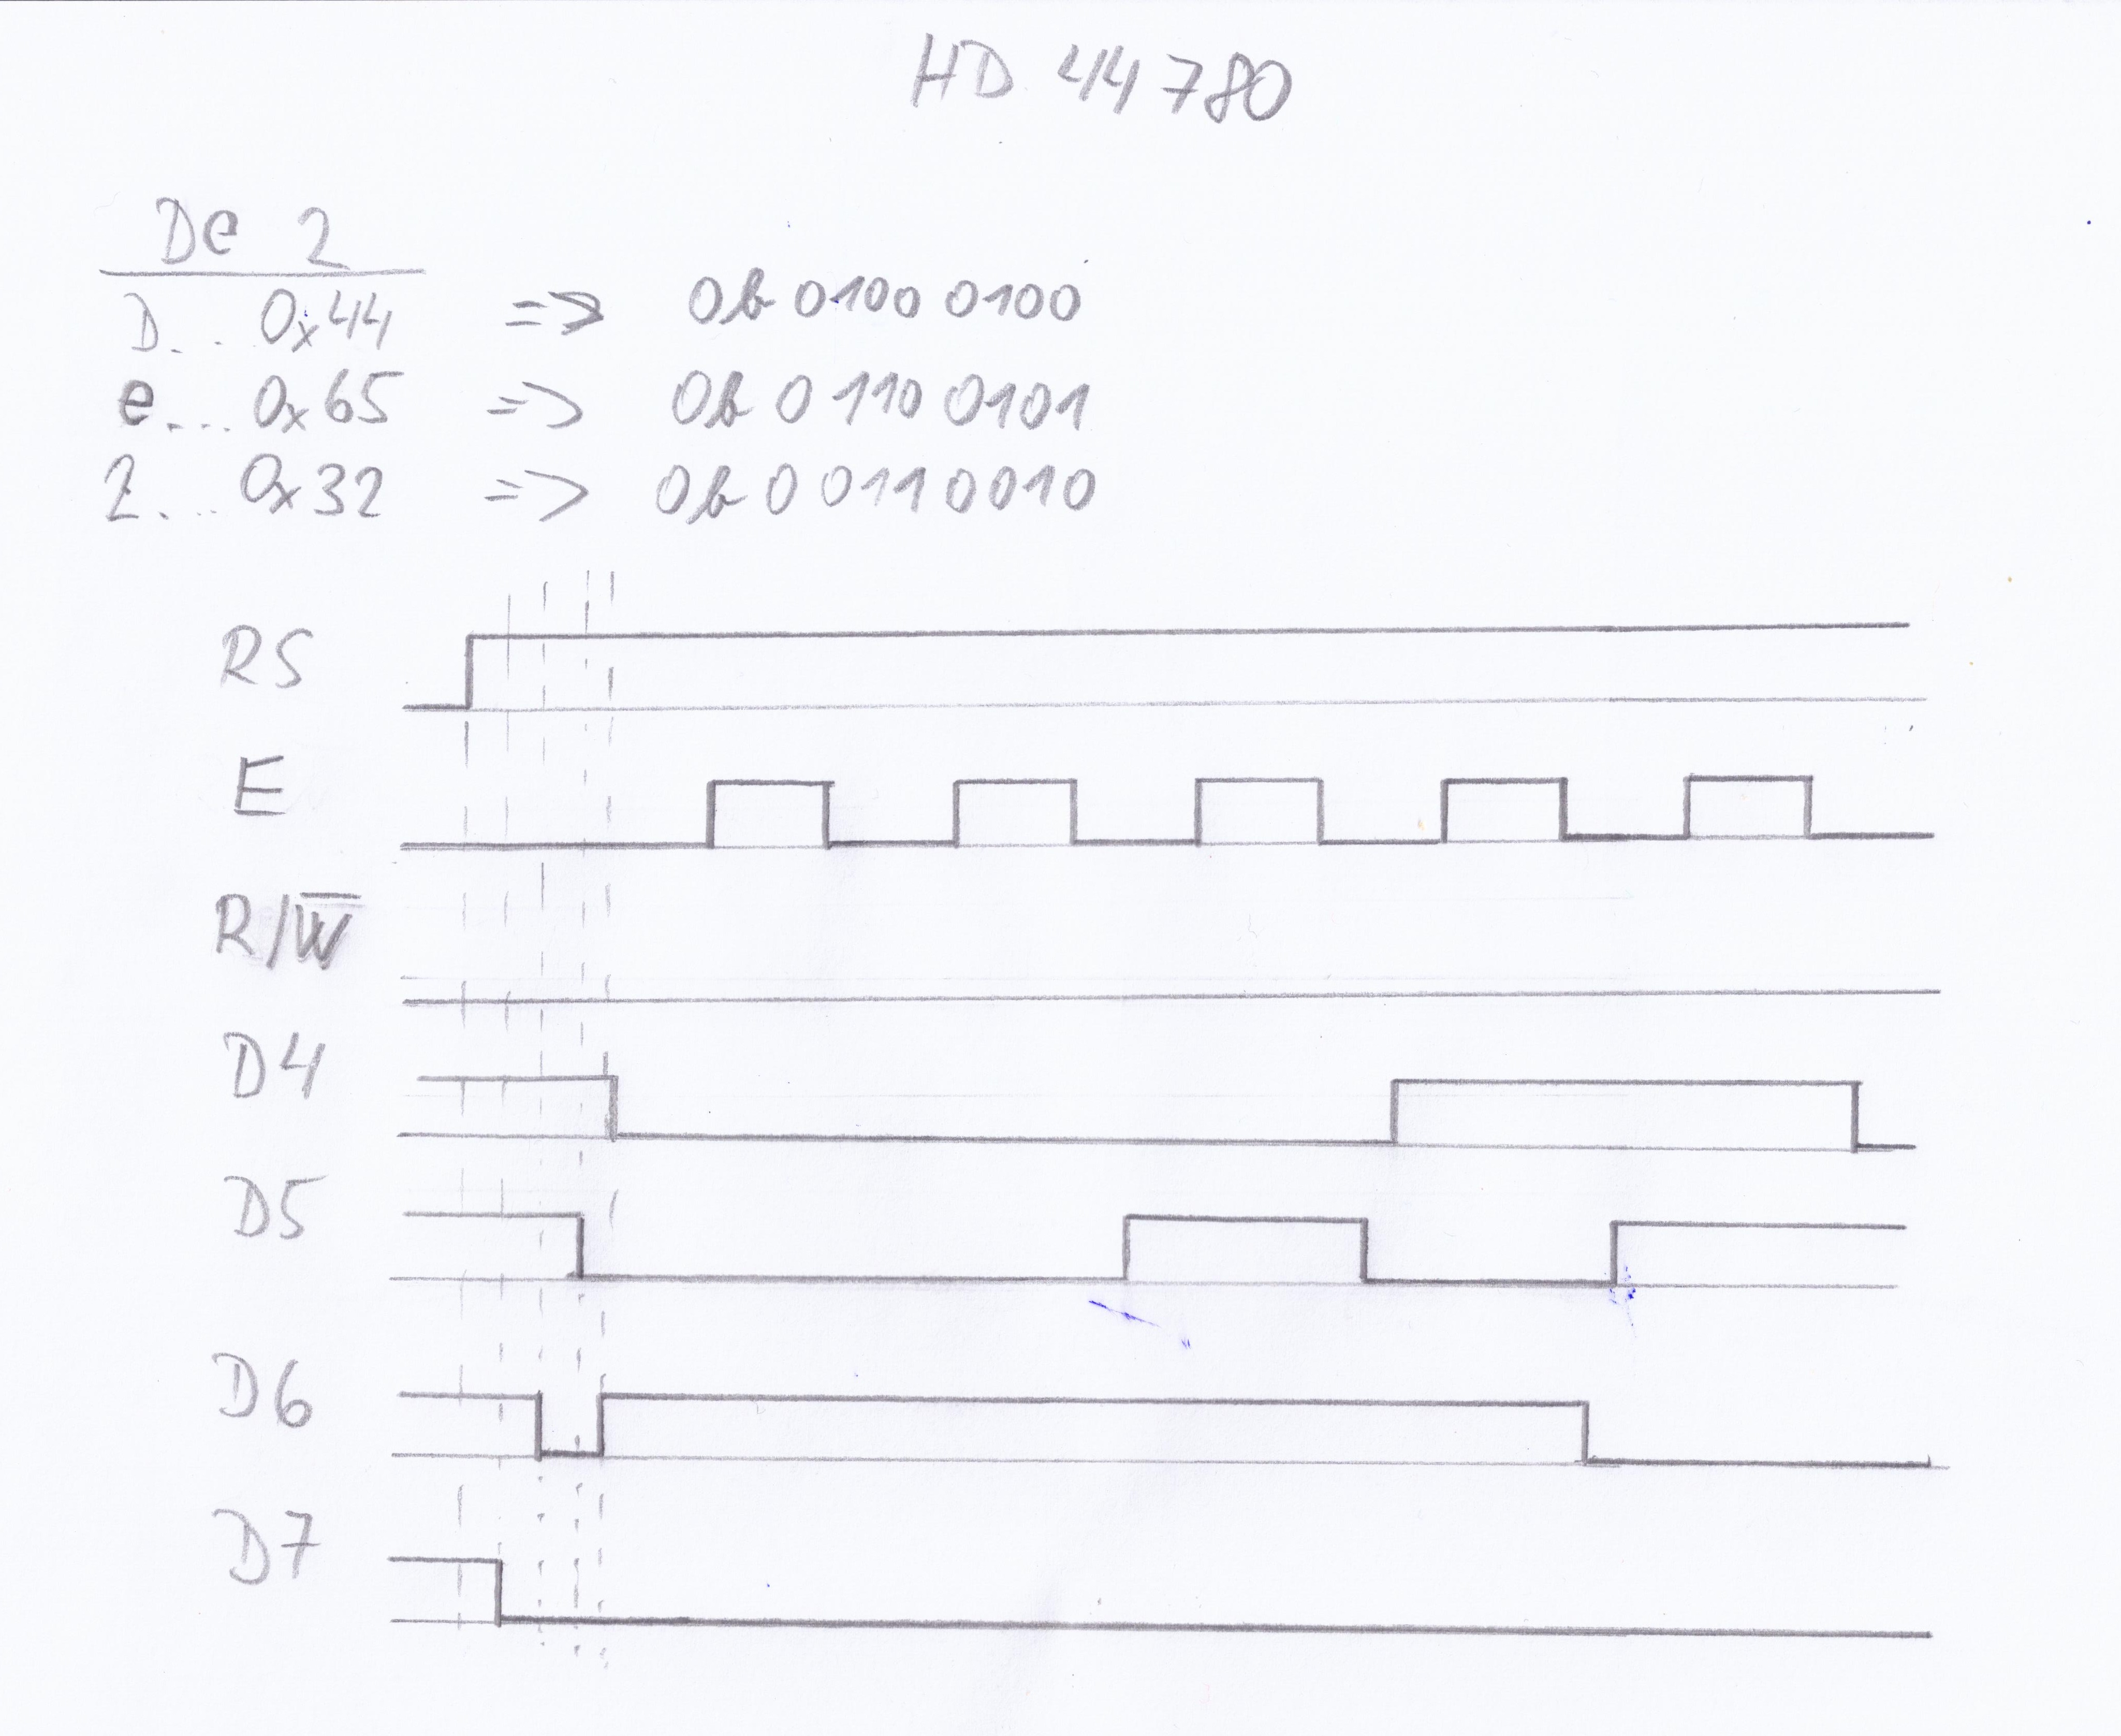 HD 44780
De 2
D... 0x44 => 0b 0100 0100
e.... 0x65 => 0b 0110 0101
2... 0x32 => 0b 0 0110010
RS
E
R/W̅
D4
D5
D6
D7